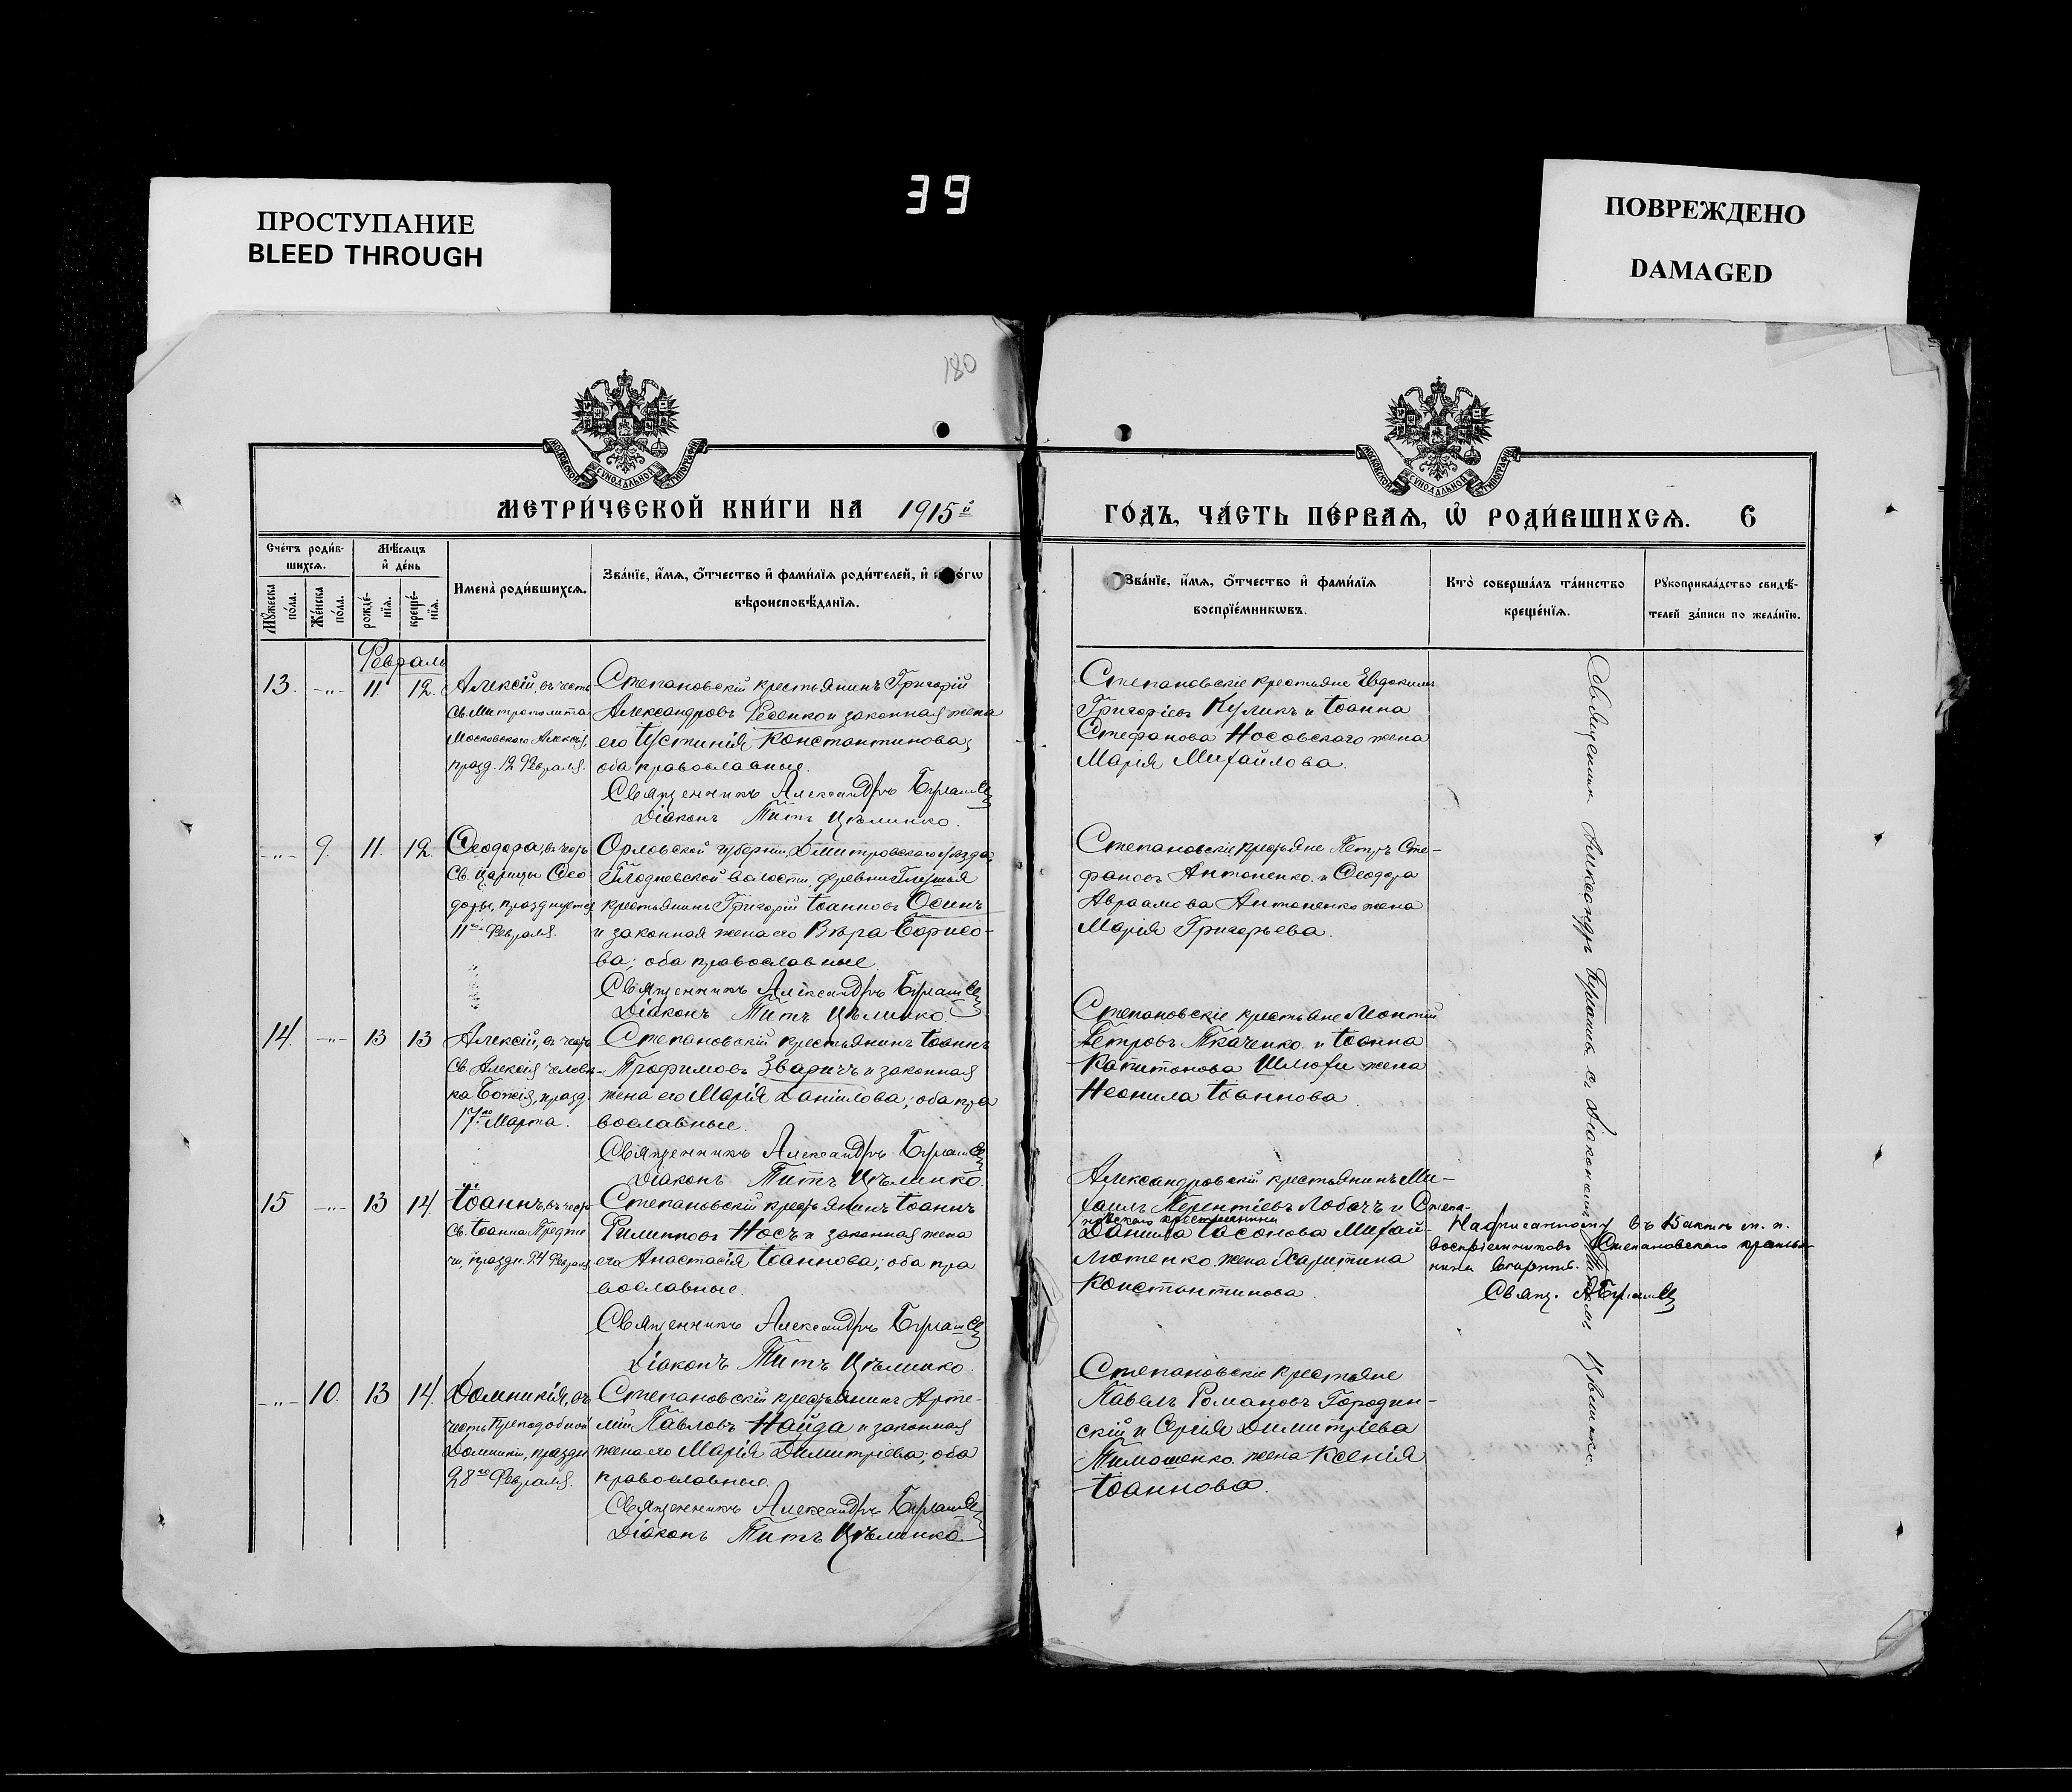 39
ПРОСТУПАНИЕ
BLEED THROUGH
ПОВРЕЖДЕНО
DAMAGED
180
МОСКОВСКОЙ СѴНОДАЛЬНОЙ ТИПОГРАФІИ
МОСКОВСКОЙ СѴНОДАЛЬНОЙ ТИПОГРАФІИ
МЕТРИ́ЧЕСКОЙ КНИ́ГИ НА 1915й
ГО́ДЪ, ЧА́СТЬ ПЕ́РВАѦ, Ѡ҆ РОДИ́ВШИХСѦ. 6
Сче́тъ роди́в-
шихсѧ.
Мꙋ́жеска по́ла.
Же́нска по́ла.
Мѣ́сѧцъ
и҆ де́нь
рожде́-
нїѧ.
креще́-
нїѧ.
И҆мена̀ роди́вшихсѧ.
Зва́нїе, и҆́мѧ, ѻ҆́тчество и҆ фами́лїѧ роди́телей, и҆
вѣроисповѣ́данїѧ.
Зва́нїе, и҆́мѧ, ѻ҆́тчество и҆ фами́лїѧ
воспрїе́мникѡвъ.
Кто̀ соверша́лъ та́инство
креще́нїѧ.
Рꙋкоприкла́дство свидѣ́-
телей за́писи по жела́нїю.
Февраль
13. -"- 11 12. Алексій, въ честь
Св. Митрополита
Московскаго Алексія,
празд. 12 Февраля.
Степановскій крестьянинъ Григорій
Александровъ Фесенко и законная жена
его Іустинія Константинова;
оба православные.
Священникъ Александръ
Діаконъ Титъ Цѣлинко.
Степановскіе крестьяне Евдокимъ
Григоріевъ Куликъ и Іоанна
Стефанова Носовскаго жена
Марія Михайлова.
-"- 9. 11. 12. Ѳеодора, въ честь
Св. Царицы Ѳео-
доры, празднуется
11го Февраля.
Орловской губерніи, Дмитровскаго уѣзда,
волости, деревни
крестьянинъ Григорій Іоанновъ Осинъ
и законная жена его Вѣра Борисо-
ва; оба православные.
Священникъ Александръ
Діаконъ Титъ Цѣлинко.
Степановскіе крестьяне Петръ Сте-
фановъ Антоненко и Ѳеодора
Авраамова Антоненко жена
Марія Григорьева.
14. -"- 13 13 Алексій, въ честь
Св. Алексія человѣ-
ка Божія, празд.
17го Марта.
Степановскій крестьянинъ Іоаннъ
Трофимовъ Зваричъ и законная
жена его Марія Даніилова; оба пра
вославные.
Священникъ Александръ
Діаконъ Титъ Цѣлинко.
Степановскіе крестьяне Леонтій
Петровъ Ткаченко и Іоанна
Капитонова жена
Неонила Іоаннова.
15 -"- 13 14. Іоаннъ, въ честь
Св. Іоанна Предте
чи, праздн. 24 Февраля
Степановскій крестьянинъ Іоаннъ
Филипповъ Носъ и законная жена
его Анастасія Іоаннова; оба пра
вославные.
Священникъ Александръ
Діаконъ Титъ Цѣлинко.
Александровскій крестьянинъ Ми-
хаилъ Терентіевъ Лобачъ и Степа-
новскаго крестьянина
Даніила Іасонова Михай-
лютенко жена Харитина
Константинова.
Надписанному въ 15 актѣ м. п.
воспріемниковъ Степановскаго крестья-
нина вѣрить.
Свящ. А.
-"- 10. 13 14. Домникія, въ
честь Преподобной
Домникіи, праздн
28го Февраля.
Степановскій крестьянинъ Арте-
мій Павловъ Найда и законная
жена его Марія Димитріева; оба
православные.
Священникъ Александръ
Діаконъ Титъ Цѣлинко.
Степановскіе крестьяне
Павелъ Романовъ Городин-
скій и Сергія Димитріева
Тимошенко жена Ксенія
Іоаннова.
Священникъ Александръ съ Діакономъ Титомъ Цѣлинко.